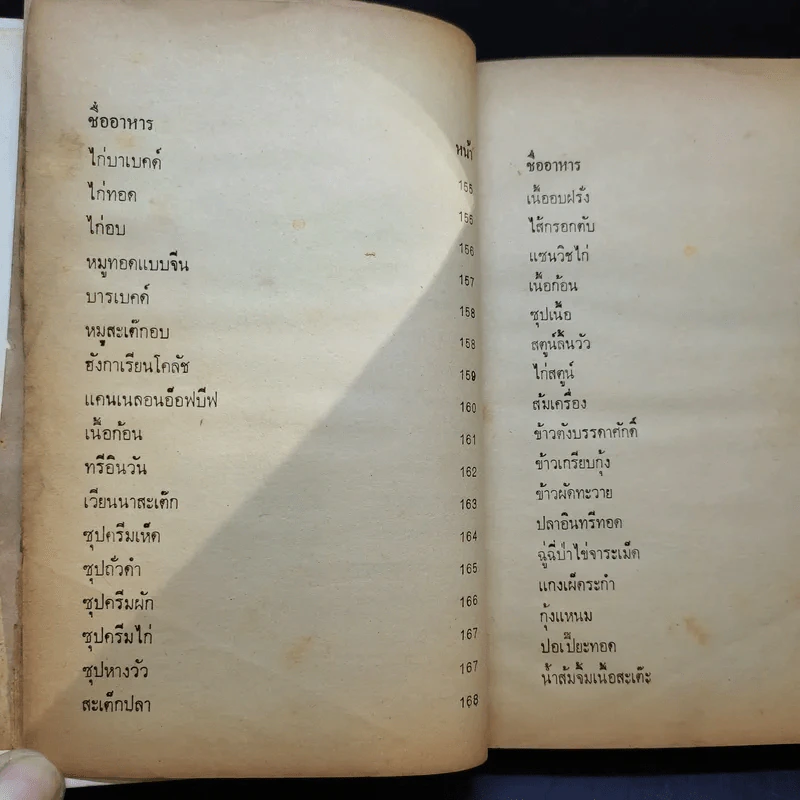 ชื่ออาหาร
หน้า
ไก่บาเบคด์ 155
ไก่ทอด 156
ไก่อบ 156
หมูทอดแบบจีน 157
บารเบคด์ 158
หมูสะเต๊กอบ 158
ฮังกาเรียนโคลัช 159
แคนเนลอนอ็อฟบีฟ 160
เนื้อก้อน 161
ทรีอินวัน 162
เวียนนาสะเต๊ก 163
ซุปครีมเห็ด 164
ซุปถั่วดำ 165
ซุปครีมผัก 166
ซุปครีมไก่ 167
ซุปหางวัว 167
สะเต็กปลา 168
ชื่ออาหาร
เนื้ออบฝรั่ง
ไส้กรอกตับ
แซนวิชไก่
เนื้อก้อน
ซุปเนื้อ
สตูน์ลิ้นวัว
ไก่สตูน์
ส้มเครื่อง
ข้าวตังบรรดาศักดิ์
ข้าวเกรียบกุ้ง
ข้าวผัดทะวาย
ปลาอินทรีทอด
ฉู่ฉี่ป่าไข่จาระเม็ด
แกงเผ็ดระกำ
กุ้งแหนม
ปอเปี๊ยะทอด
น้ำส้มจิ้มเนื้อสะเต๊ะ